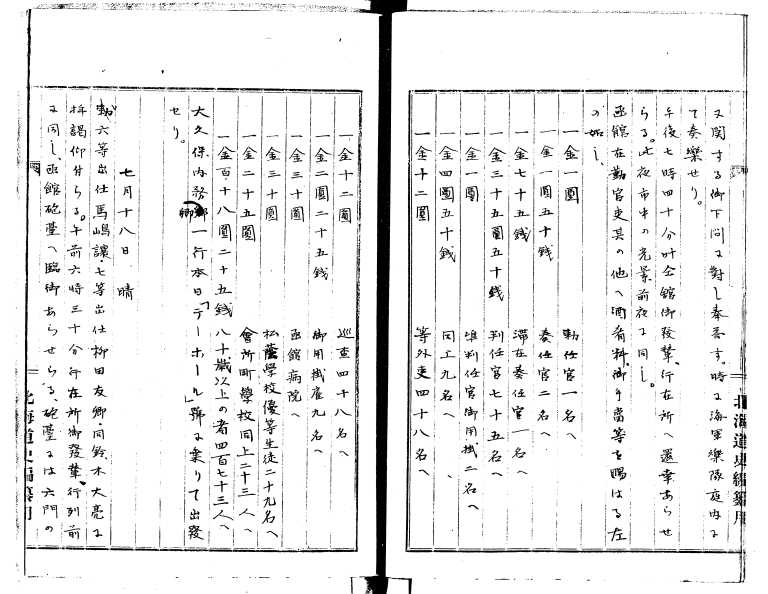 に関する御下問に対し奉答す。時に海軍樂隊庭内に
て奏樂せり。
午後七時四十分叶全館御發輦、行在所へ還幸あらせ
らる。此夜市中の光景前夜に同し。
函館在勤官吏其の他へ酒肴料、御手當等を賜はる左
の如し、
一金一圓 勅任官一名へ
一金一圓五十銭 奏任官二名へ
一金七十五銭 滞在奏任官一名へ
一金三十五圓五十銭 判任官七十五名へ
一金一圓 准判任官御用掛二名へ
一金四圓五十銭 同上九名へ
一金十二圓 等外吏四十八名へ
北海道史編纂用
一金十二圓 巡査四十八名へ
一金二圓二十五銭 御用掛雇九名へ
一金三十圓 函館病院へ
一金三十圓 松蔭學校優等生徒二十九名へ
一金二十五圓 會所町學校同上二十三人へ
一金百十八圓二十五銭 八十歳以上の者四百七十三人へ
大久保内務卿一行本日「テーボール」號に乗りて出發
せり。
七月十八日 晴
六等出仕馬嶋譲、七等出仕柳田友郷、同鈴木大亮に
拝謁仰付らる。午前六時三十分行在所御發輦。行列前
に同し、函館砲臺へ臨御あらせらる、砲臺には六門の
北海道史編纂用